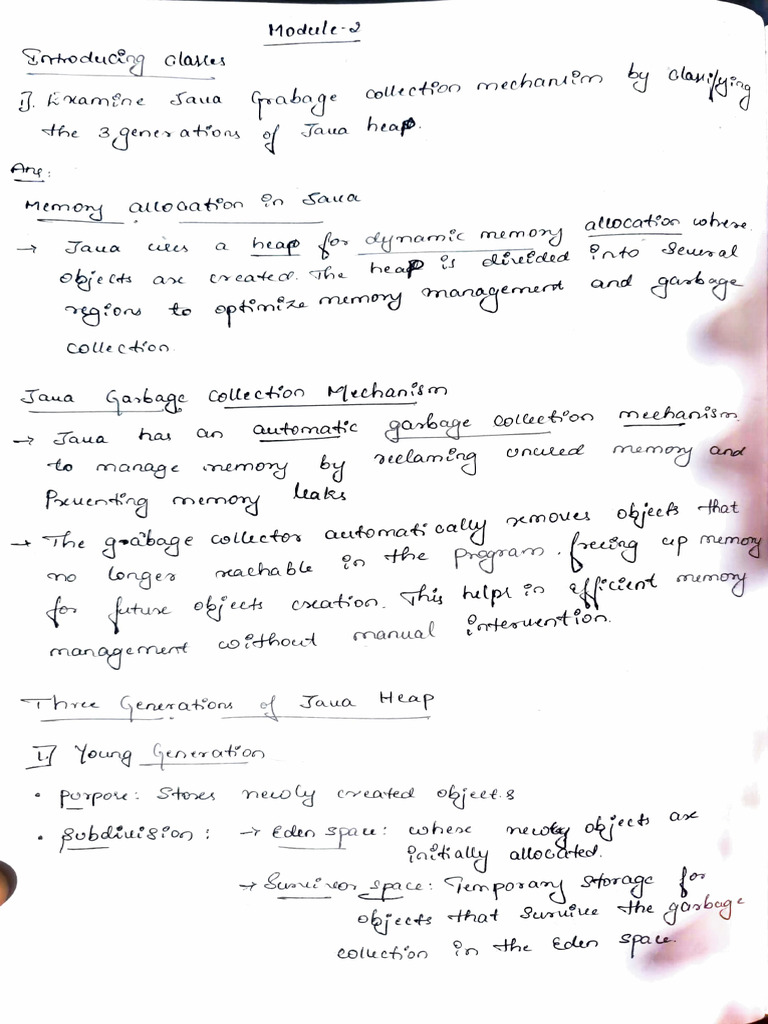 Module-2
Introducing classes
1). Examine Java Grabage collection mechanism by classifying
the 3 generations of Java heap.
Ans:
Memory allocation in Java
→ Java uses a heap for dynamic memory allocation where
objects are created. The heap is divided into several
regions to optimize memory management and garbage
collection.
Java Garbage Collection Mechanism
→ Java has an automatic garbage collection mechanism
to manage memory by reclaming unused memory and
Preventing memory leaks
→ The grabage collector automatically removes objects that
no longer reachable in the program. freeing up memory
for future objects creation. This helps in efficient memory
management without manual intervention.
Three Generations of Java Heap
1.) Young Generation
• purpose: Stores newly created objects
• Subdivision: → Eden space: where newly objects are
initially allocated.
→ Survivor space: Temporary storage for
objects that survive the garbage
collection in the Eden space.